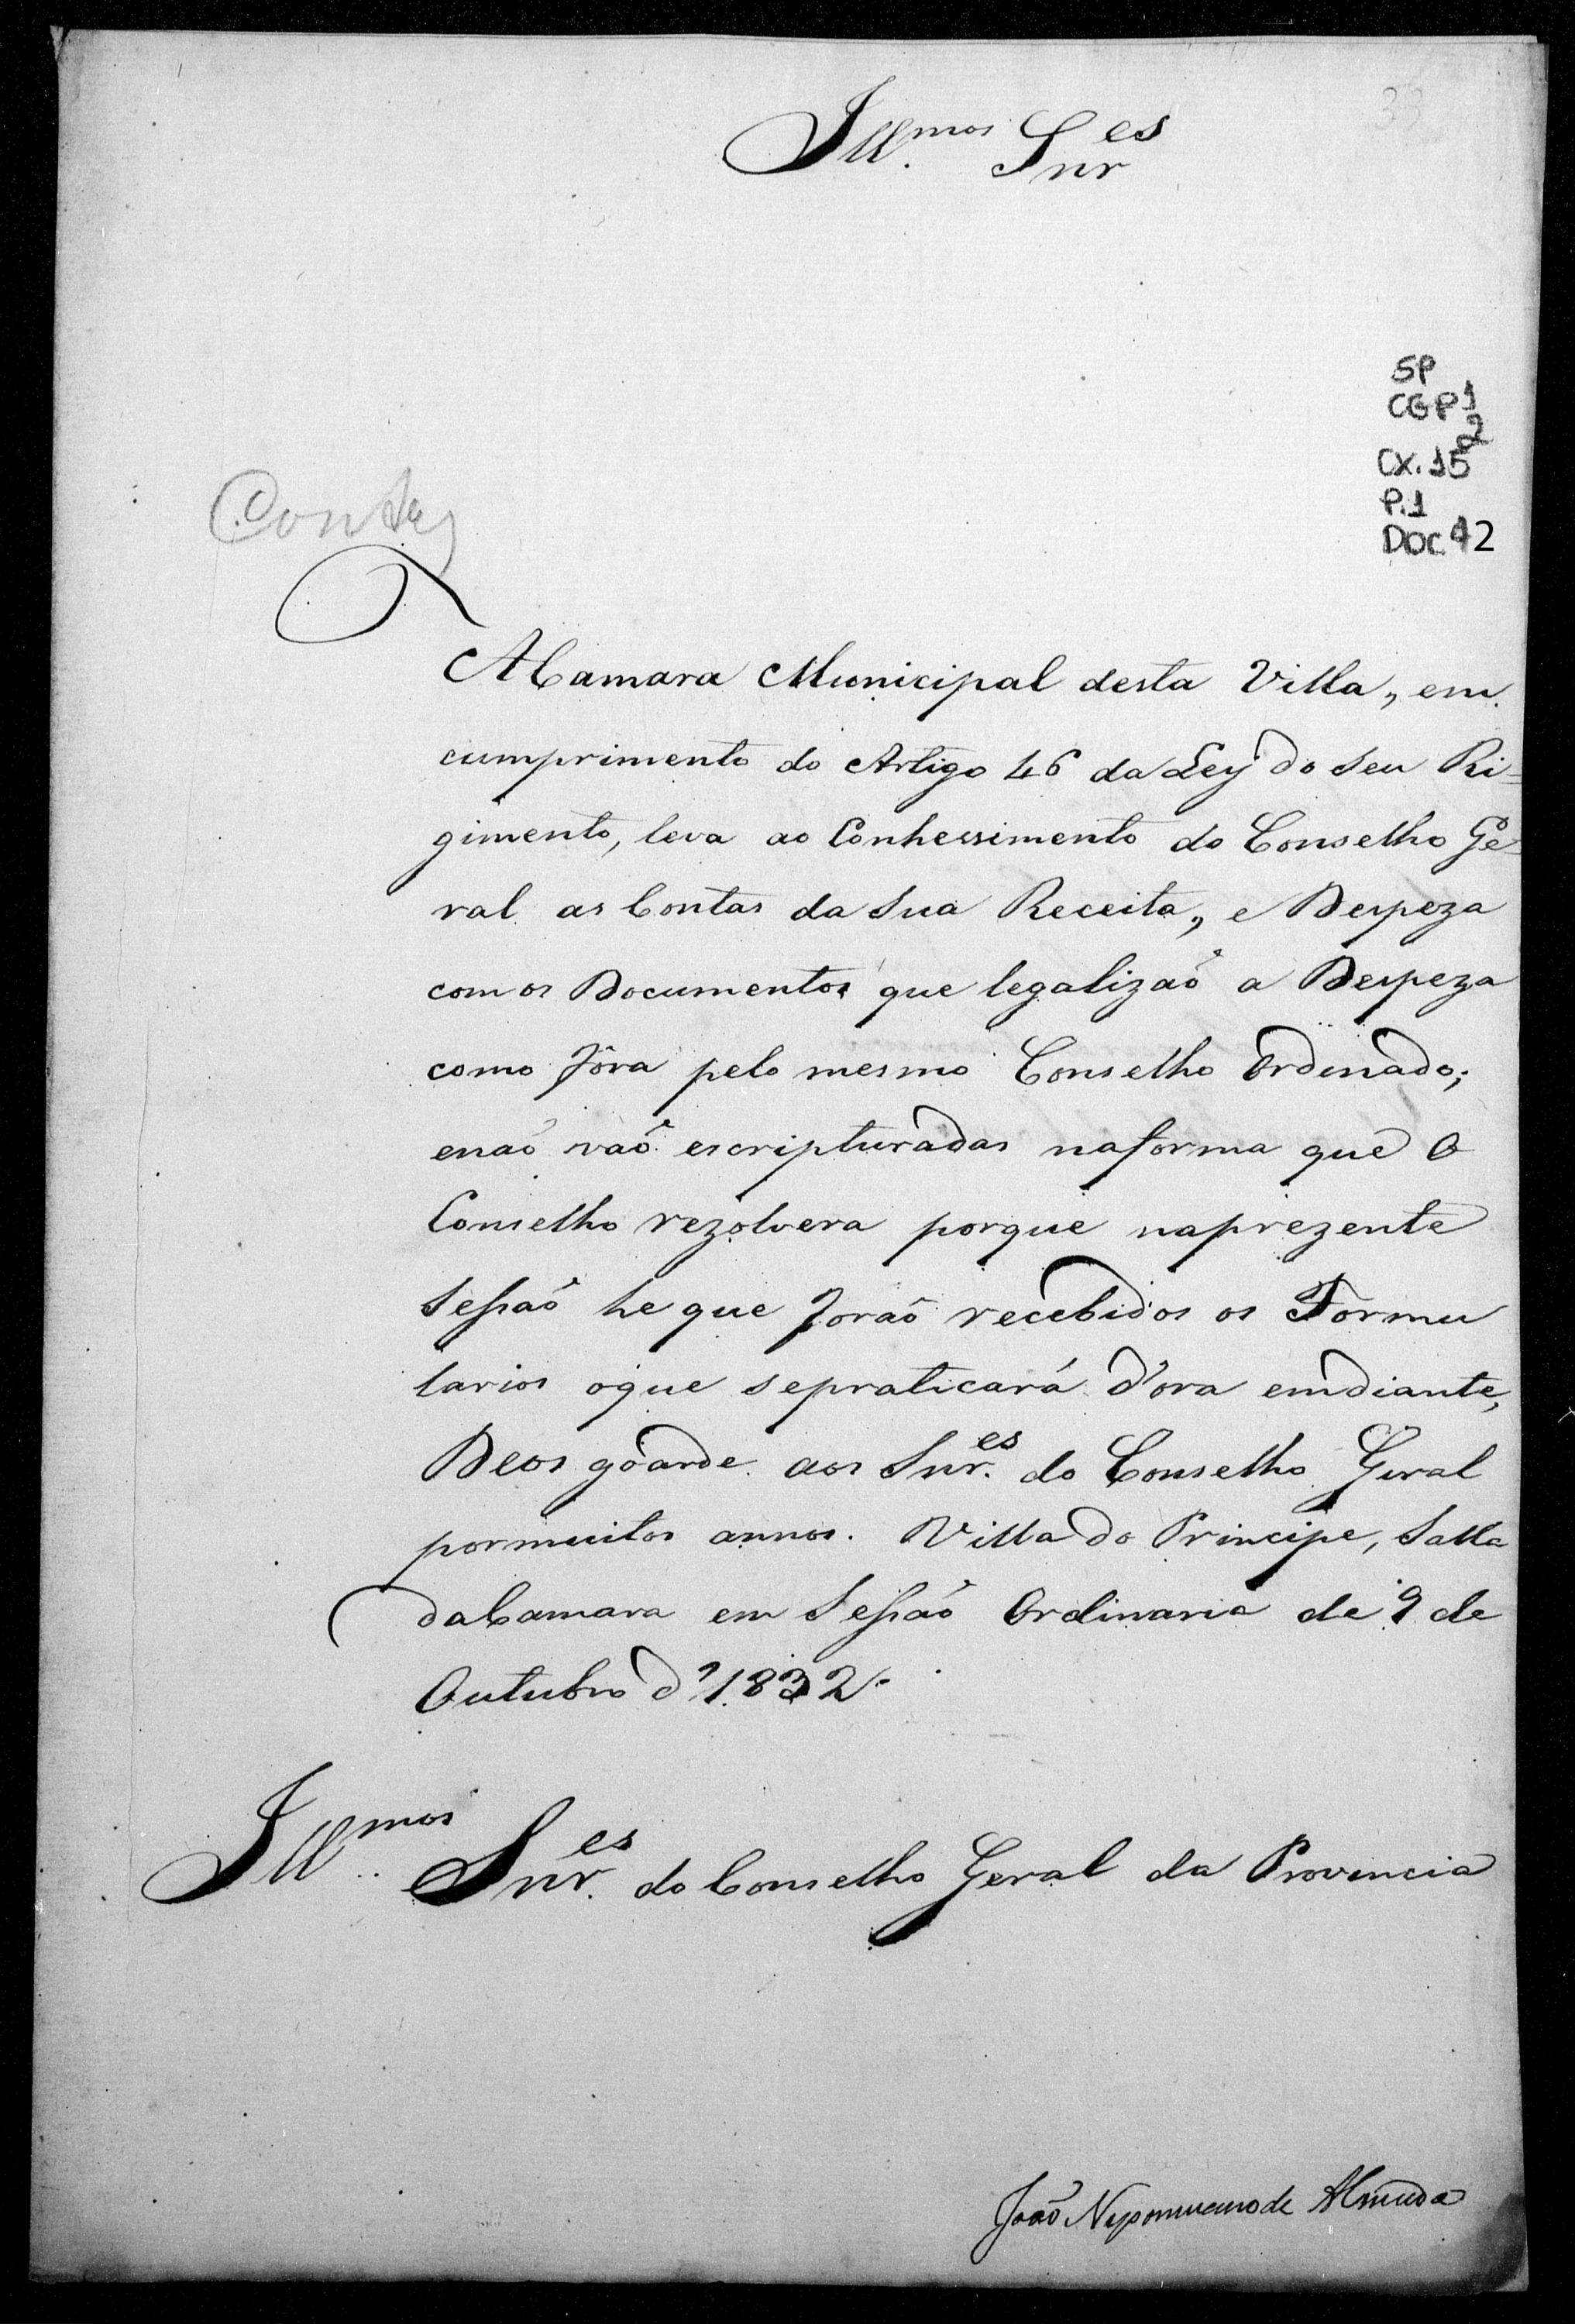 33
Illmos. Snres
SP
CGP1
2
CX. 15
P.1
DOC 42
Contas
A Camara Municipal desta Villa, em
cumprimento do Artigo 46 da Ley do seu Ri=
gimento, leva ao Conhessimento do Conselho Ge=
ral as Contas da Sua Receita, e Despeza
com os Documentos que legalizaõ a Despeza
como fôra pelo mesmo Conselho Ordenado;
enaõ vaõ escripturadas naforma que O
Conselho rezolvera porque naprezente
Sessaõ he que foraõ recebidos os Formu
larios oque sepraticará d'ora emdiante,
Deos goarde aos Snres. do Conselho Geral
pormuitos annos. Villa do Principe, Salla
daCamara em Sessaõ Ordinaria de 9 de
Outubro d'1832.
Illmos. Snres. do Conselho Geral da Provincia
João Nepomucenode Almeida